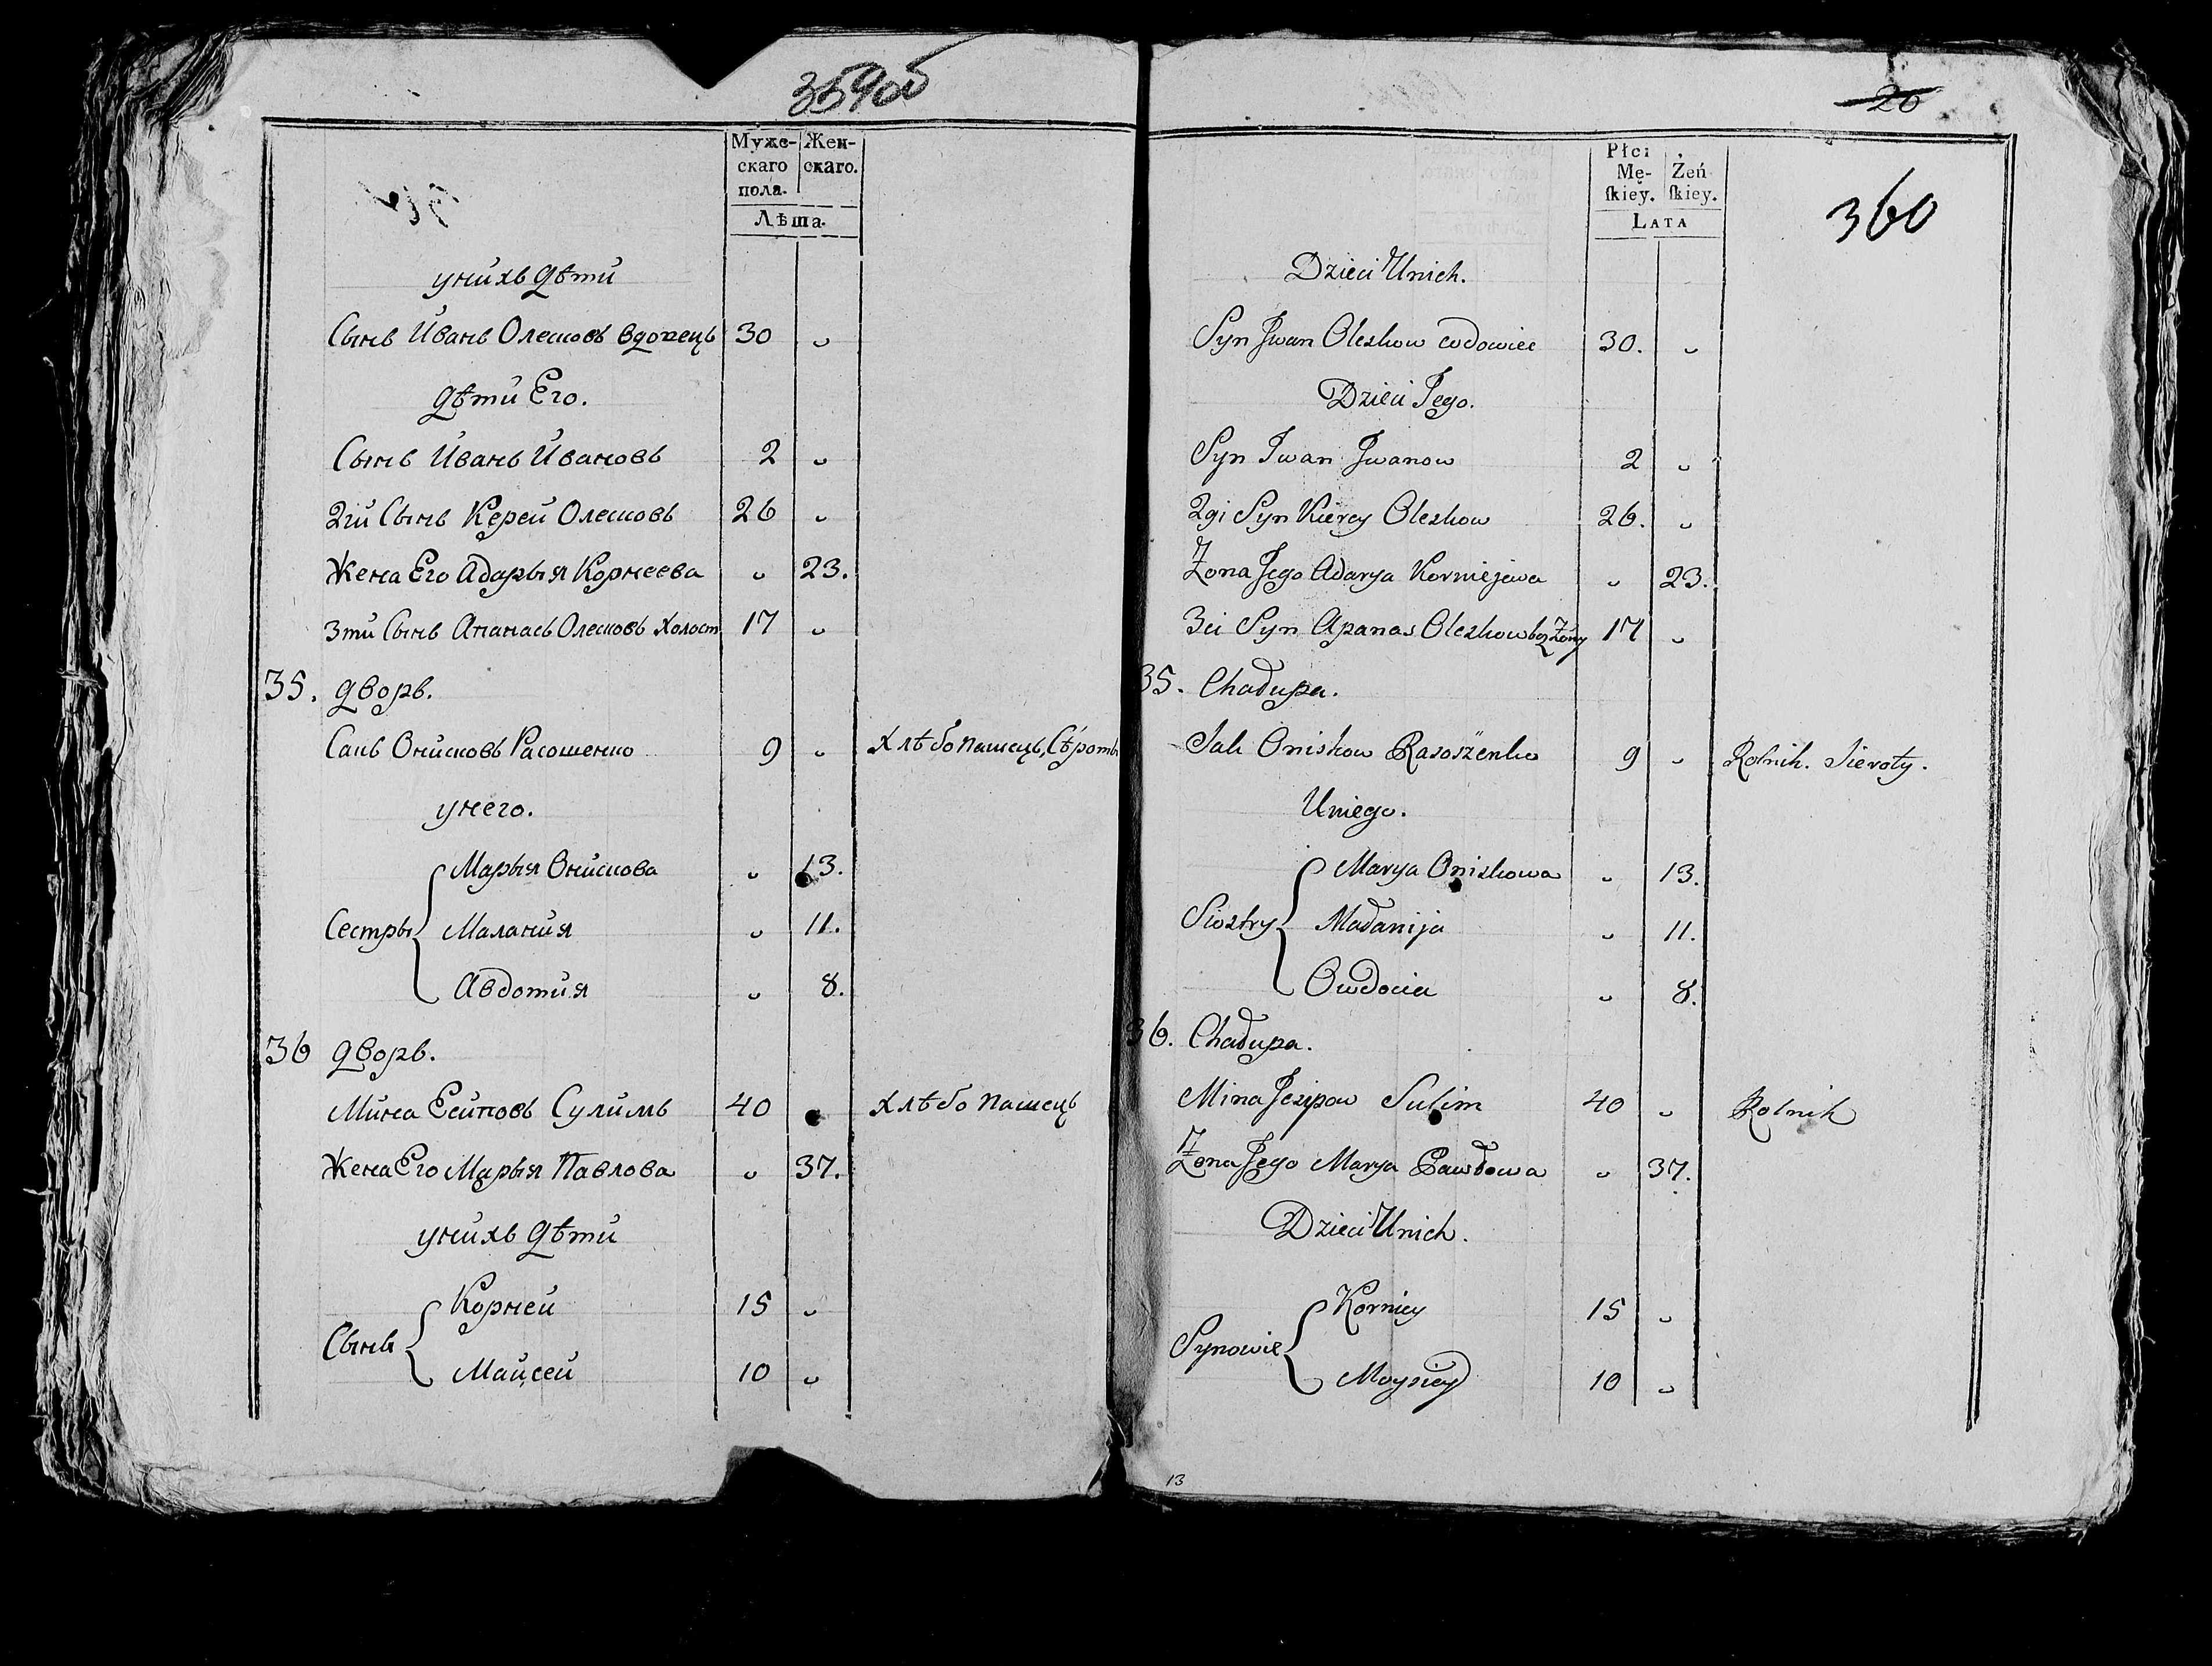 359об
Муже-
скаго
пола.
Жен-
скаго.
Лѣта.
унихъ дѣти
Сынъ Иванъ Олесковъ вдовецъ 30 „
дѣти Его.
Сынъ Иванъ Ивановъ 2 „
2й Сынъ Керей Олесковъ 26 „
Жена Его Адарья Корнеева „ 23.
3ти Сынъ Апанасъ Олесковъ Холост 17 „
35. дворъ.
Сакъ Онисковъ Расошенко 9 „ Хлѣбопашецъ, Сѣроты
унего.
Марья Онискова „ 13.
Сестры Малания „ 11.
Авдотия „ 8.
36 дворъ.
Мина Есиповъ Сулимъ 40 „ Хлѣбопашецъ
Жена Его Марья Павлова „ 37.
унихъ дѣти
Корней 15 „
Сыны
Майсей 10 „
20
360
Płci
Mę-
skiey.
Żeń
skiey.
LATA
Dzieci Unich.
Syn Jwan Oleskow wdowiec 30. „
Dzieci Jego.
Syn Iwan Jwanow 2 „
2gi Syn Kierey Oleskow 26. „
Żona Jego Adarya Korniejewa „ 23.
3ci Syn Apanas Oleskow bez Żony 17 „
35. Chałupa.
Sak Oniskow Rasoszenko 9 „ Rolnik. Sieroty.
Uniego.
Marya Oniskowa „ 13.
Siostry Małanija „ 11.
Owdocia „ 8.
36. Chałupa.
Mina Jesipow Sulim 40 „ Rolnik
Żona Jego Marya Pawłowa „ 37.
Dzieci Unich.
Korniey 15 „
Synowie
Moysiey 10 „
13